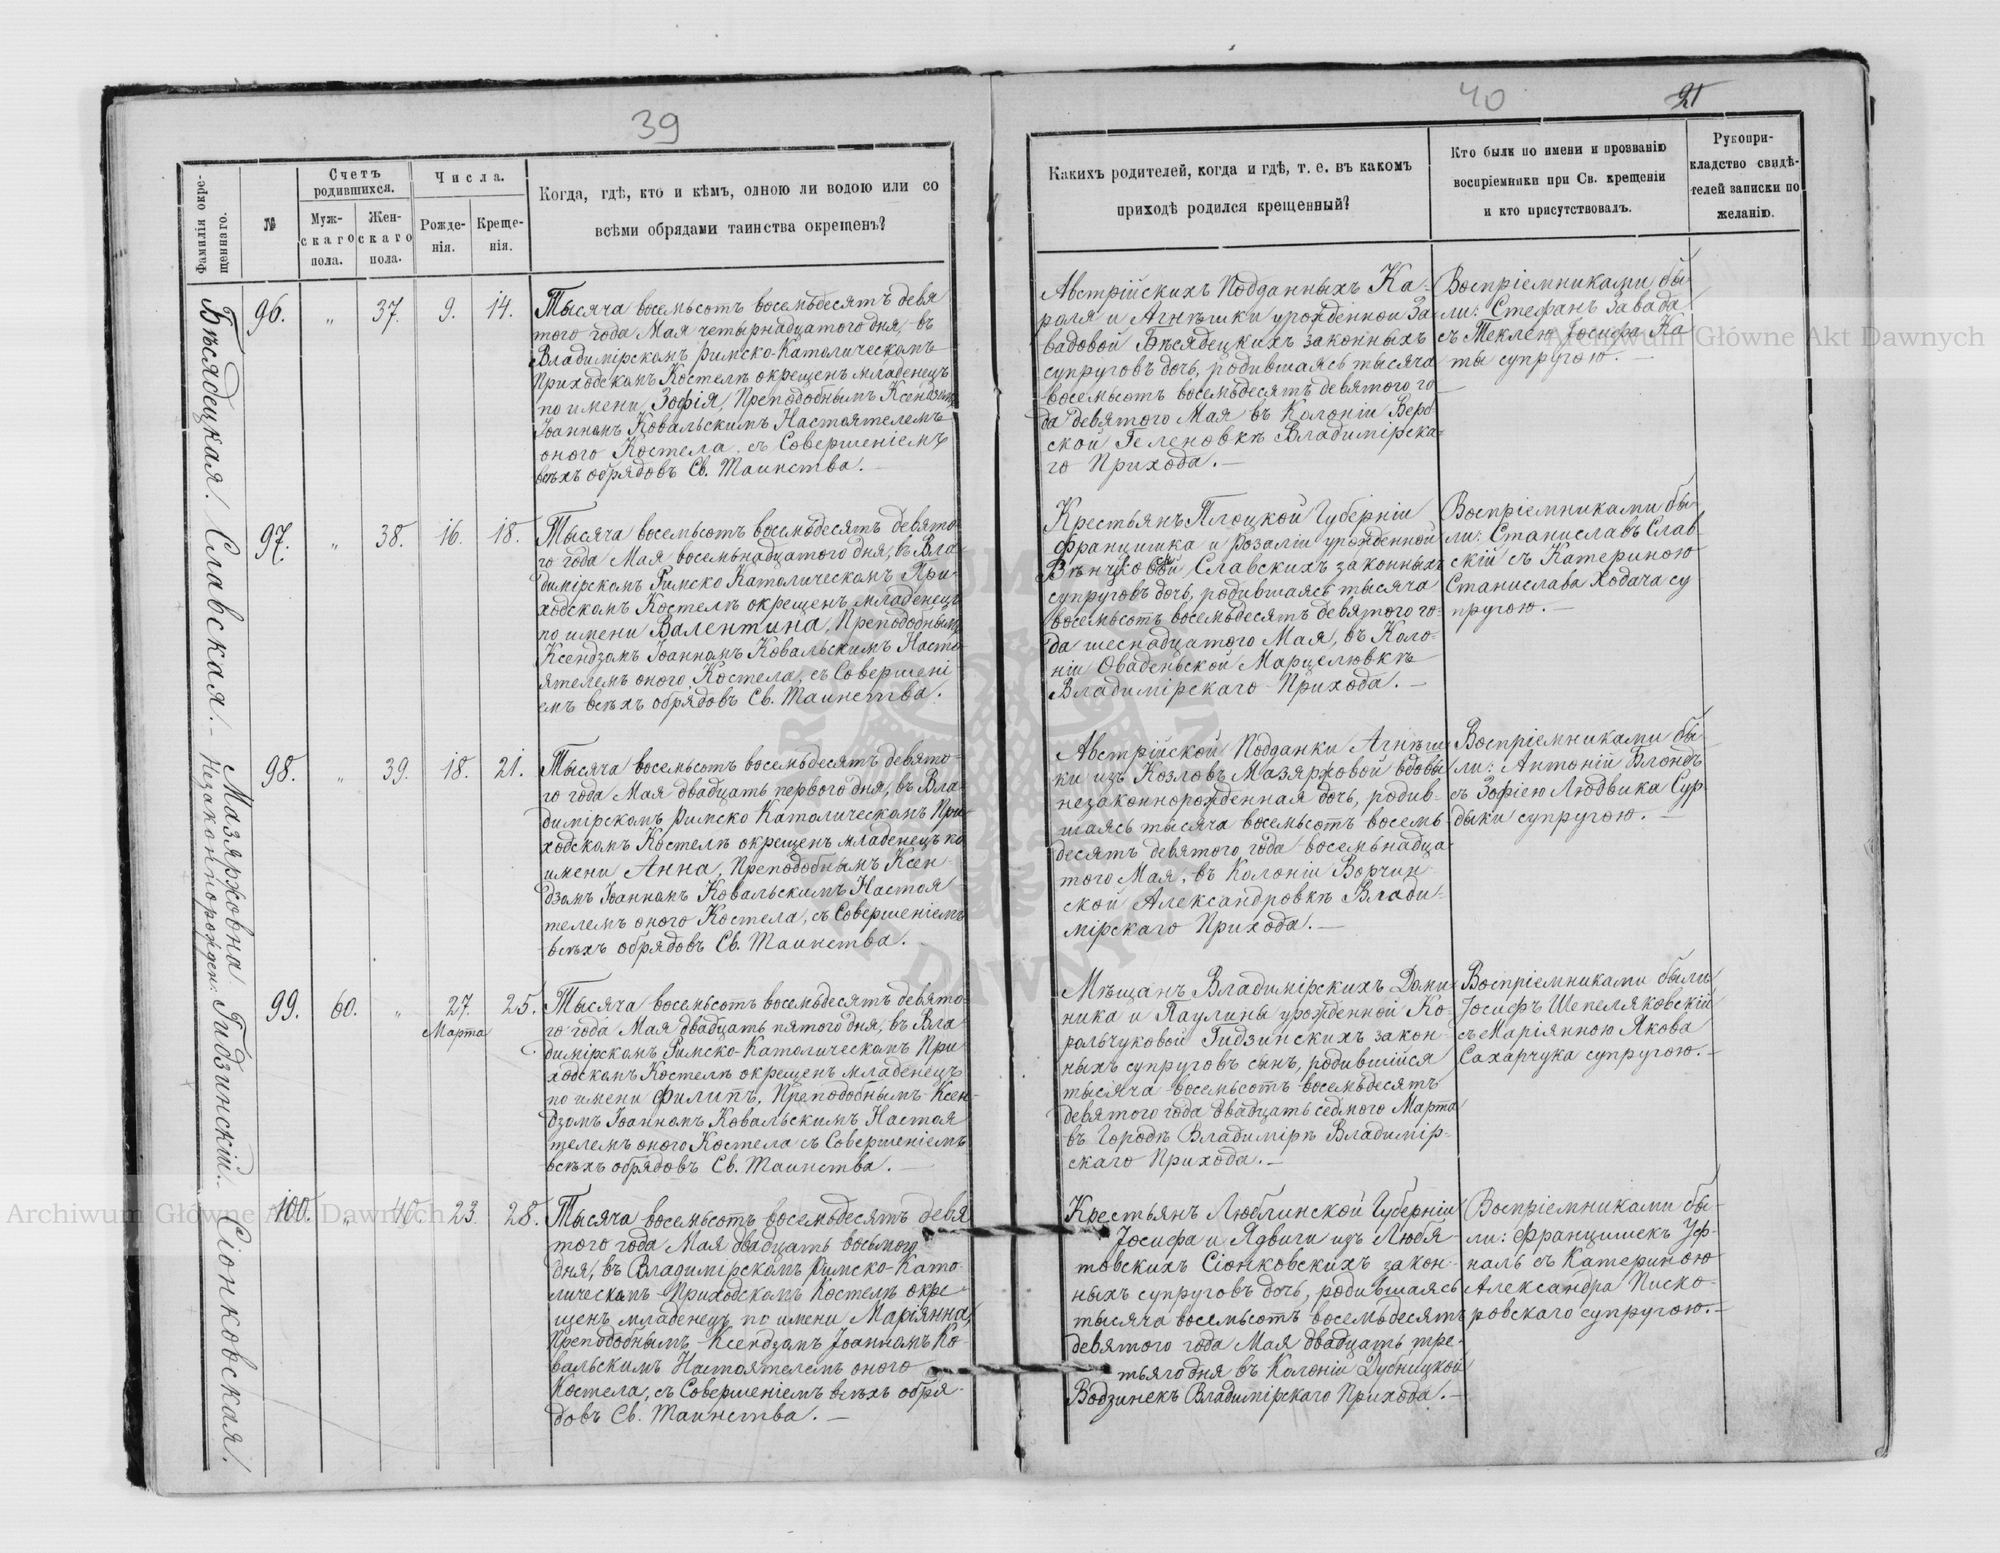 39
Фамилія окрещеннаго.
№
Счетъ родившихся.
Мужскаго пола.
Женскаго пола.
Числа.
Рожденія.
Крещенія.
Когда, гдѣ, кто и кѣмъ, одною ли водою или со
всѣми обрядами таинства окрещенъ?
Бѣсядецкая.
96. „ 37. 9. 14.
Тысяча восемьсотъ восемьдесятъ девя
того года Мая четырнадцатого дня, въ
Владимірскомъ Римско-Католическомъ
Приходскомъ Костелѣ окрещенъ младенецъ
по имени Зофія, Преподобнымъ Ксендзомъ
Іоанномъ Ковальскимъ Настоятелемъ
оного Костела, съ Совершеніемъ
всѣхъ обрядовъ Св. Таинства. —
Славская. —
97. „ 38. 16. 18.
Тысяча восемьсотъ восемьдесятъ девято-
го года Мая восемьнадцатого дня, въ Вла-
димірскомъ Римско Католическомъ При
ходскомъ Костелѣ окрещенъ младенецъ
по имени Валентина, Преподобнымъ
Ксендзомъ Іоанномъ Ковальскимъ Насто-
ятелемъ оного Костела, съ Совершені
емъ всѣхъ обрядовъ Св. Таинства.
Мазяржовна
Незаконнорожден.
98. „ 39. 18. 21.
Тысяча восемьсотъ восемьдесятъ девято-
го года Мая двадцать первого дня, въ Вла-
димірскомъ Римско Католическомъ При
ходскомъ Костелѣ окрещенъ младенецъ по
имени Анна, Преподобнымъ Ксен
дзомъ Іоанномъ Ковальскимъ Настоя
телемъ оного Костела, съ Совершеніемъ
всѣхъ обрядовъ Св. Таинства.
Гидзинскій.
99. 60. „ 27. Марта 25.
Тысяча восемьсотъ восемьдесятъ девято-
го года Мая двадцать пятого дня, въ Вла
димірскомъ Римско-Католическомъ При
ходскомъ Костелѣ окрещенъ младенецъ
по имени Филипъ, Преподобнымъ Ксен-
дзомъ Іоанномъ Ковальскимъ Настоя
телемъ оного Костела съ Совершеніемъ
всѣхъ обрядовъ Св. Таинства. —
Сіонковская.
100. „ 40. 23. 28.
Тысяча восемьсотъ восемьдесятъ девя
того года Мая двадцать восьмого
дня, въ Владимірскомъ Римско-Като-
лическомъ Приходскомъ Костелѣ окре
щенъ младенецъ по имени Маріянна,
Преподобнымъ Ксендзомъ Іоанномъ Ко-
вальскимъ Настоятелемъ оного
Костела, съ Совершеніемъ всѣхъ обря-
довъ Св. Таинства. —
40
21
Какихъ родителей, когда и гдѣ, т. е. въ какомъ
приходѣ родился крещенный?
Кто были по имени и прозванію
воспріемники при Св. крещеніи
и кто присутствовалъ.
Рукопри-
кладство свидѣ-
телей записки по
желанію.
Австрійскихъ Подданныхъ Ка-
роля и Агнѣшки урожденной За-
вадовой Бѣсядецкихъ законныхъ
супруговъ дочь, родившаяся тысяча
восемьсотъ восемьдесятъ девятого го
да девятого Мая въ Колоніи Верб
ской Геленовкѣ Владимірска-
го Прихода. —
Воспріемниками бы
ли: Стефанъ Завада
съ Теклею Іосифа Ка
ты супругою. —
Крестьянъ Плоцкой Губерніи
Францишка и Розаліи урожденной
Вѣнчковой Славскихъ законныхъ
супруговъ дочь, родившаяся тысяча
восемьсотъ восемьдесятъ девятого го-
да шеснадцатого Мая, въ Коло-
ніи Оваденьской Марцелювкѣ
Владимірскаго Прихода. —
Воспріемниками бы
ли: Станиславъ Слав-
скій съ Катериною
Станислава Ходача су
пругою. —
Австрійской Подданки Агнѣш
ки изъ Козловъ Мазяржовой вдовы
незаконнорожденная дочь, родив-
шаясь тысяча восемьсотъ восемь-
десятъ девятого года восемьнадца-
того Мая, въ Колоніи Ворчин
ской Александровкѣ Влади-
мірскаго Прихода. —
Воспріемниками бы
ли: Антоній Блондъ
съ Зофіею Людвика Сур
дыки супругою. —
Мѣщанъ Владимірскихъ Доми
ника и Паулины урожденной Ко-
рольчуковой Гидзинскихъ закон-
ныхъ супруговъ сынъ, родившійся
тысяча восемьсотъ восемьдесятъ
девятого года двадцать седмого Марта
въ Городѣ Владимірѣ Владимір-
скаго Прихода. —
Воспріемниками были
Іосифъ Шепеляковскій
съ Маріянною Якова
Сахарчука супругою. —
Крестьянъ Люблинской Губерніи
Іосифа и Ядвиги изъ Любя-
товскихъ Сіонковскихъ закон-
ныхъ супруговъ дочь, родившаясь
тысяча восемьсотъ восемьдесятъ
девятого года Мая двадцать тре-
тьяго дня въ Колоніи Дубницкой
Водзинекъ Владимірскаго Прихода. —
Воспріемниками бы-
ли: Францишекъ Уф-
наль съ Катериною
Александра Писко-
ровскаго супругою. —
Archiwum Główne Akt Dawnych
Archiwum Główne Akt Dawnych